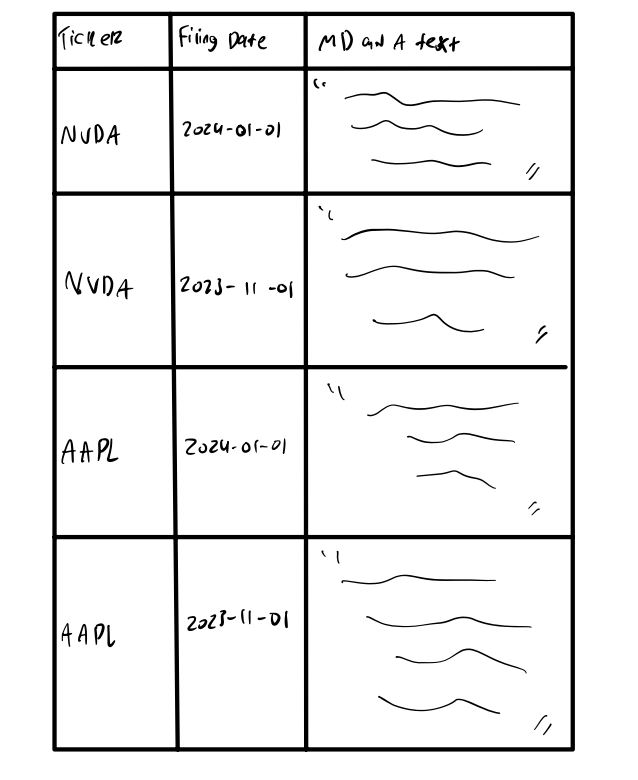 Ticker Filing Date MD and A text
NVDA 2024-01-01 "
"
NVDA 2023-11-01 "
"
AAPL 2024-01-01 "
"
AAPL 2023-11-01 "
"